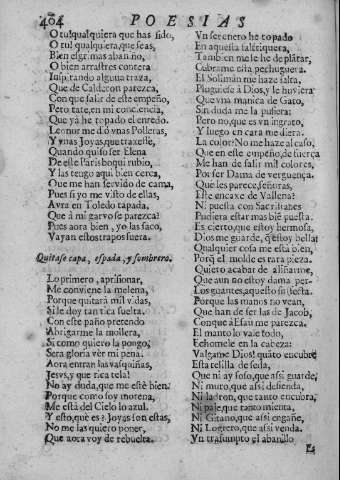 404 POESIAS
O tu, qualquiera que has sido,
O tu, qualquiera, que seas,
Bien esgrimas abanino,
O bien arrastres contera
Inspirando alguna traza,
Que de Calderon parezca,
Con que salir de este empeño,
Pero tate, en mi conciencia,
Que yà he topado el enredo.
Leonor me diò vnas Polleras,
Y vnas Joyas, que traxesse,
Quando quiso ser Elena
De este Paris boquirubio,
Y las tengo aqui bien cerca,
Que me han servido de cama,
Pues si yo me visto de ellas,
Avrà en Toledo tapada,
Que à mi garvo se parezca?
Pues aora bien, yo las saco,
Vayan estos trapos fuera.
Quitase capa, espada, y sombrero.
Lo primero, aprisionar,
Me conviene la melena,
Porque quitarà mil vidas,
Si le doy tantica suelta.
Con este paño pretendo
Abrigarme la mollera,
Si como quiero la pongo,
Serà gloria vèr mi pena.
Aora entran las vasquiñas,
Jesvs, y que rica tela!
No ay duda, que me estè bien,
Porque como soy morena,
Me està del Cielo lo azul.
Y esto, què es? Joyas son estas,
No me las quiero poner,
Que aora voy de rebuelta.
Vn serenero he topado
En aquesta faltriquera,
Tambien me le he de plãtar,
Cabrame esta pechuguera.
El Solimàn me haze falta,
Pluguiesse à Dios, y le huviera
Que vna manica de Gato,
Sin duda me la pusiera:
Pero no, que es vn ingrato,
Y luego en cara me diera.
La color? No me haze al caso,
Que en este empeño, de fuerça
Me han de salir mil colores,
Por ser Dama de verguença,
Què les parece, señoras,
Este encaxe de Vallena?
Ni puesta con Sacristanes
Pudiera estar mas biẽ puesta.
Es cierto, que estoy hermosa,
Dios me guarde, q̃ estoy bella!
Qualquier cosa me està bien,
Porq̃ el molde es rara pieza.
Quiero acabar de aliñarme,
Que aun no estoy dama per-
Los guantes, aquesto si, (fecta.
Porque las manos no vean,
Que han de ser las de Jacob,
Con que à Esau me parezca.
El manto lo vale todo,
Echomele en la cabeza:
Valgame Dios! quãto encubre
Esta telilla de seda,
Que ni ay foso, que assi guarde,
Ni muro, que assi defienda,
Ni ladron, que tanto encubra,
Ni paje, que tanto mienta,
Ni Gitano, que assi engañe,
Ni Logrero, que assi venda.
Vn trasumpto el abanillo